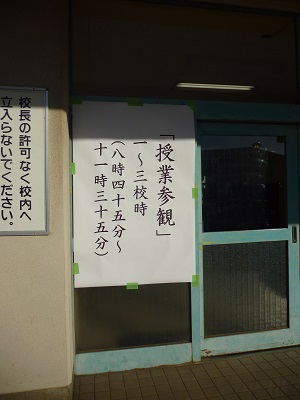 「授業参観」
一～三校時
（八時四十五分～
十一時三十五分）
校長の許可なく校内へ
立入らないでください。